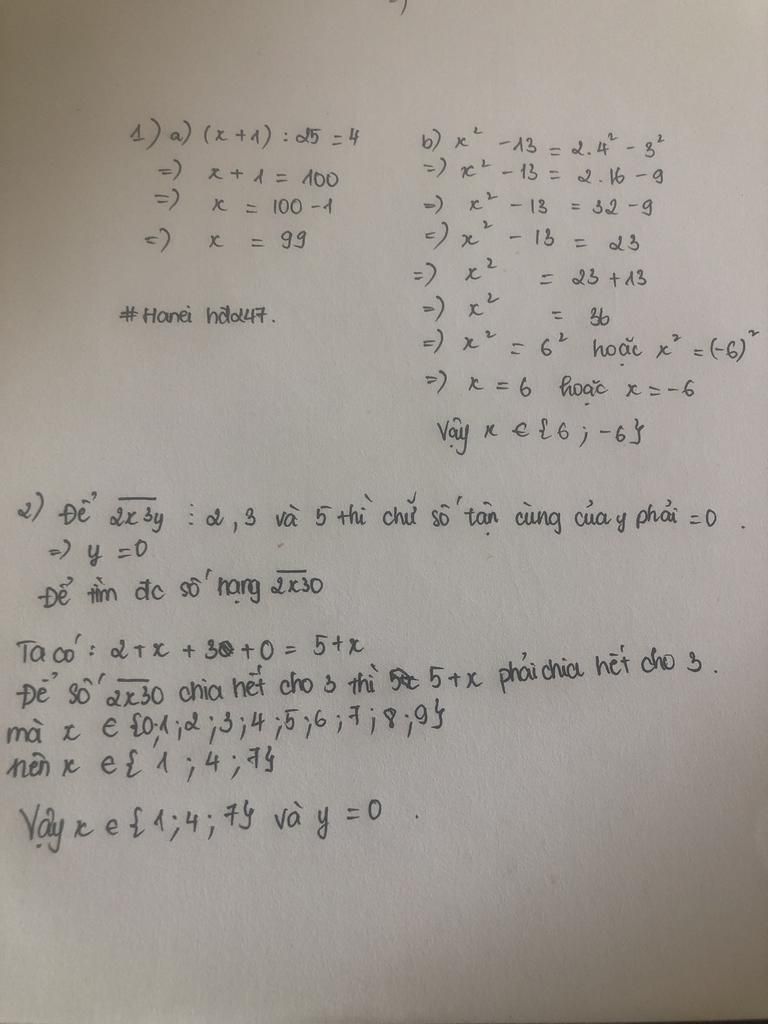 1) a) (x + 1) : 25 = 4
=) x + 1 = 100
=) x = 100 - 1
=) x = 99
#Hanei hđ247.
b) x² - 13 = 2.4² - 3²
=) x² - 13 = 2.16 - 9
=) x² - 13 = 32 - 9
=) x² - 13 = 23
=) x² = 23 + 13
=) x² = 36
=) x² = 6² hoặc x² = (-6)²
=) x = 6 hoặc x = -6
Vậy x ∈ {6 ; -6}
2) Để 2x3y ⋮ 2, 3 và 5 thì chữ số tận cùng của y phải = 0.
=) y = 0
Để tìm đc số hạng 2x30
Ta có: 2 + x + 3 + 0 = 5 + x
Để số 2x30 chia hết cho 3 thì 5 + x phải chia hết cho 3.
mà x ∈ {0;1;2;3;4;5;6;7;8;9}
nên x ∈ {1;4;7}
Vậy x ∈ {1;4;7} và y = 0.